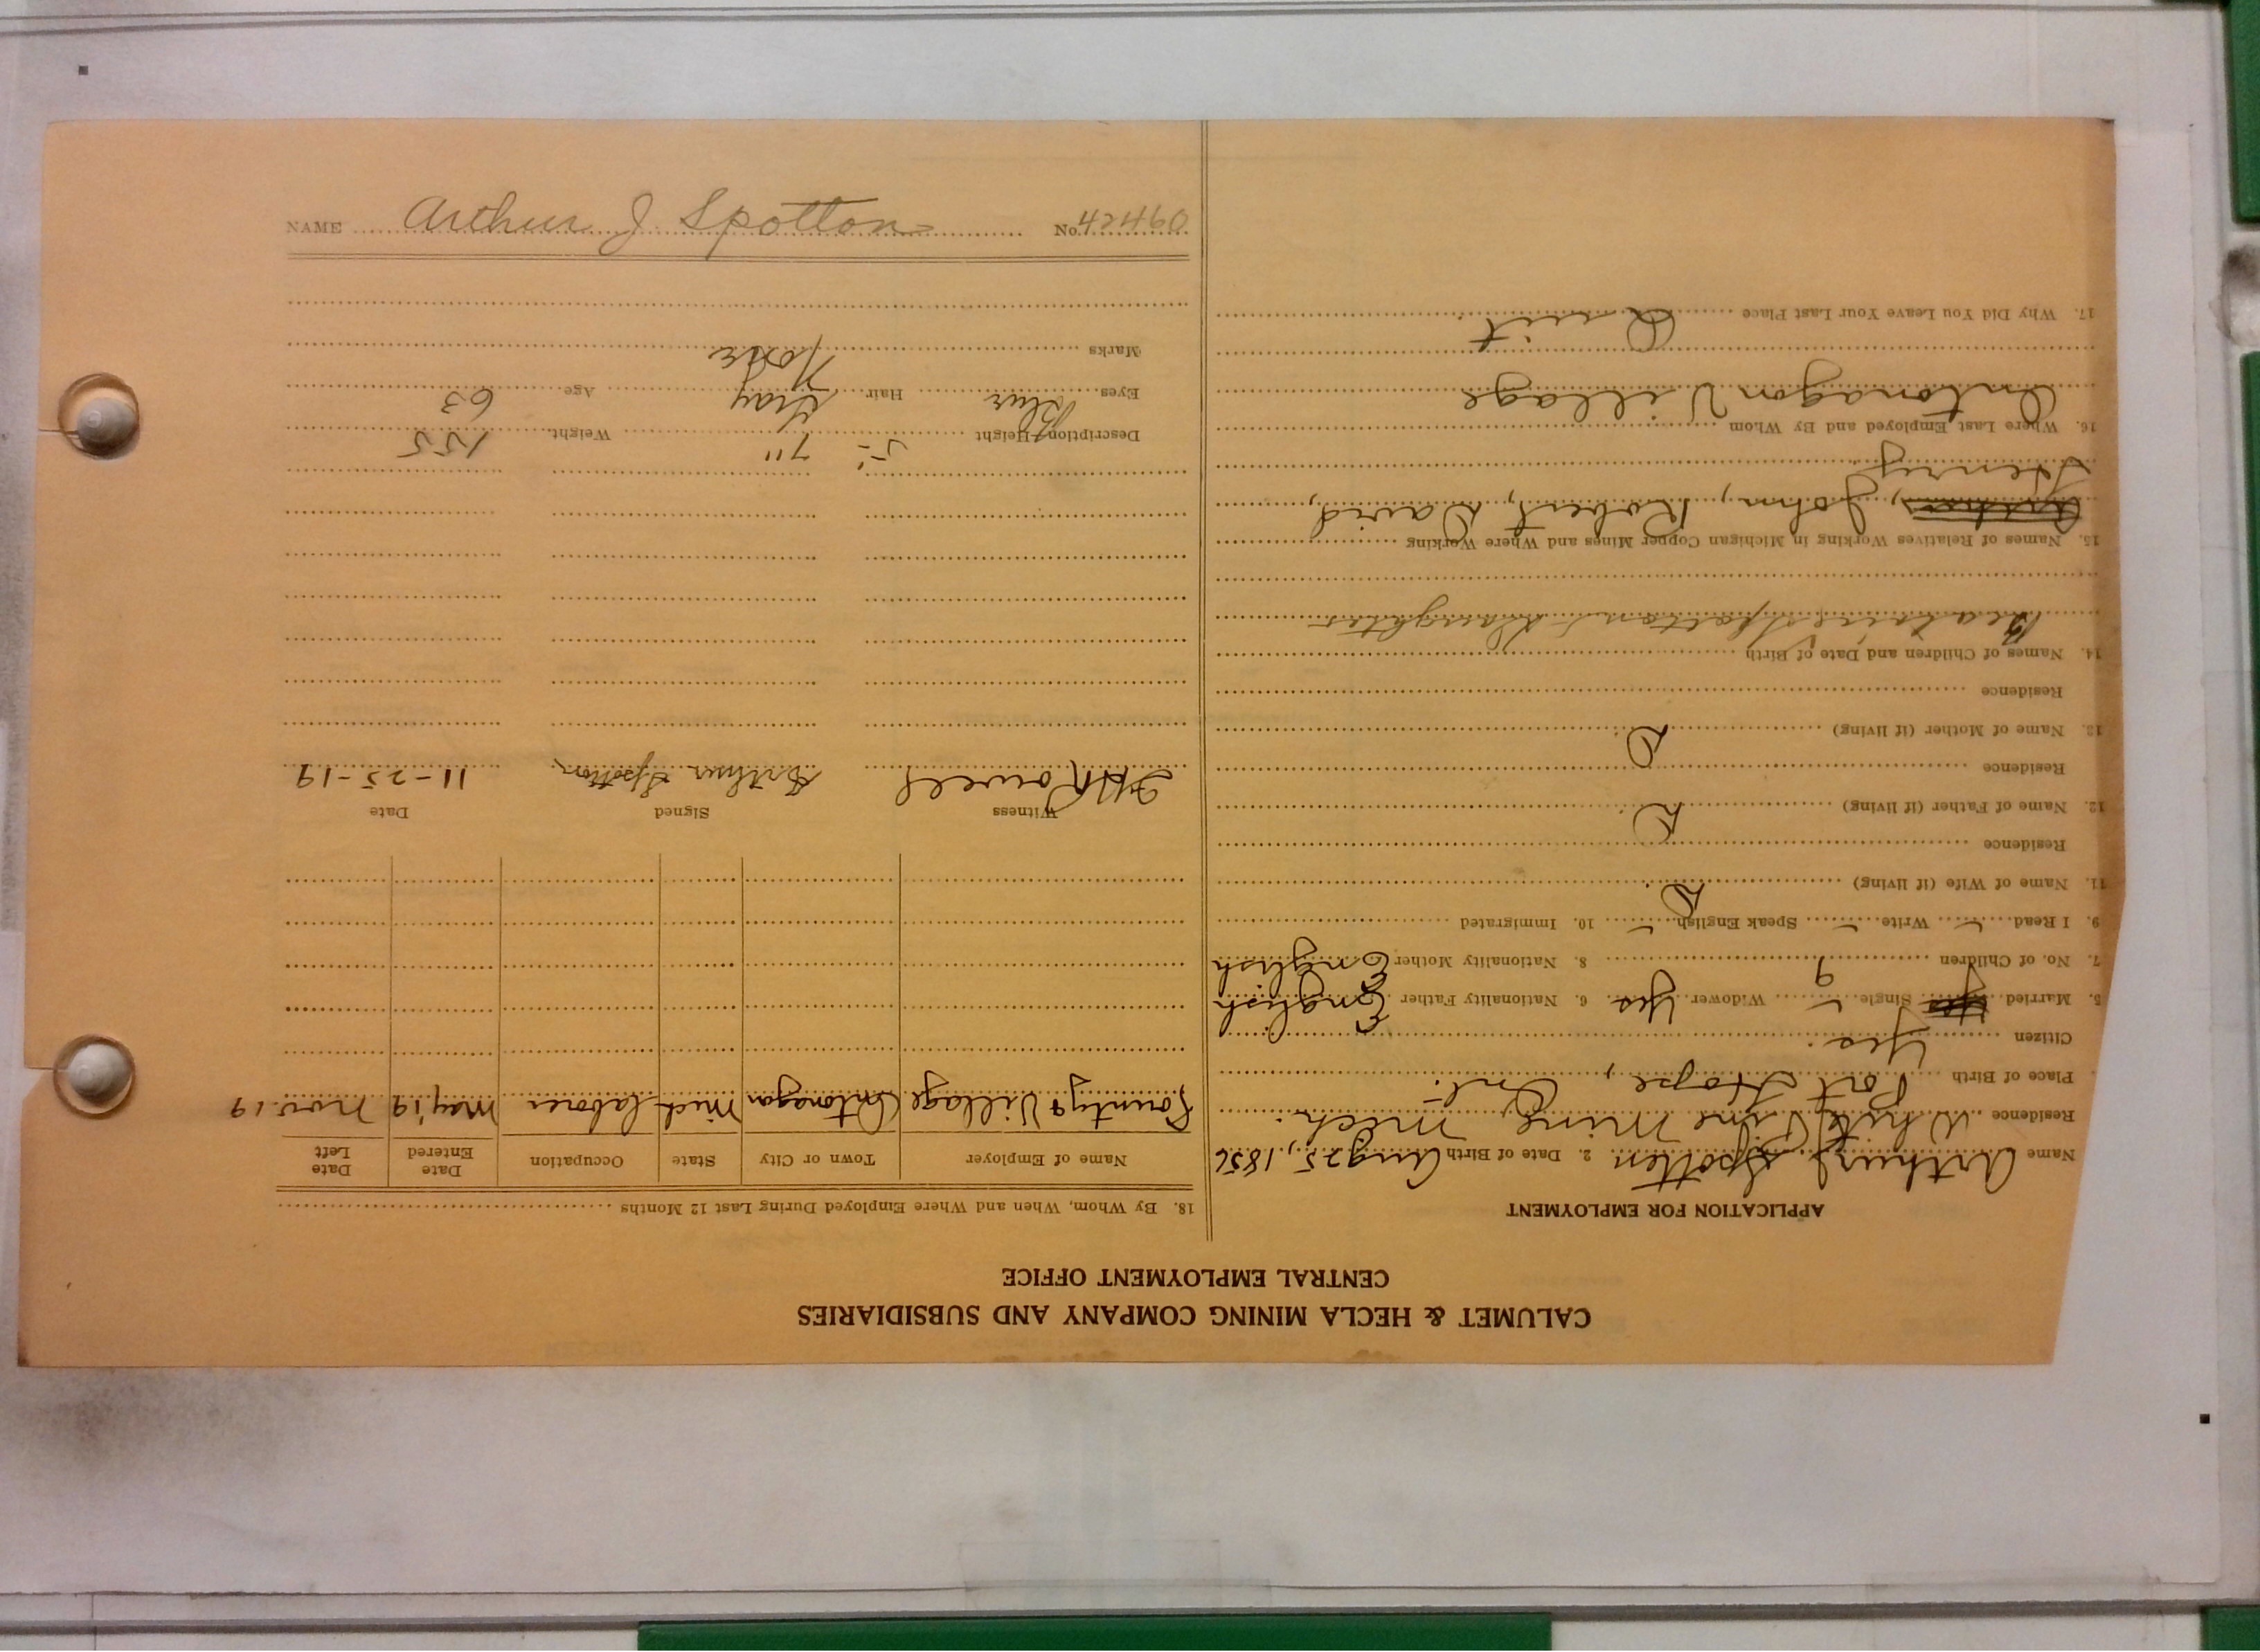 NAME Arthur J. Spotton No. 42460
CALUMET & HECLA MINING COMPANY AND SUBSIDIARIES
CENTRAL EMPLOYMENT OFFICE
APPLICATION FOR EMPLOYMENT
Name Arthur J Spotton 2. Date of Birth Aug 25, 1856
Residence White Pine Mine, Mich.
Place of Birth Port Hope, Ont.
Citizen Yes.
5. Married Yes Single Widower Yes 6. Nationality Father English
7. No. of Children 9 8. Nationality Mother English
9. I Read ✓ Write ✓ Speak English ✓ 10. Immigrated
11. Name of Wife (if living) D
Residence
12. Name of Father (if living) D.
Residence
13. Name of Mother (if living) D.
Residence
14. Names of Children and Date of Birth
Beatrice Spotton Daughter
15. Names of Relatives Working in Michigan Copper Mines and Where Working
Arthur, John, Robert, David,
Henry
16. Where Last Employed and By Whom
Ontonagon Village
17. Why Did You Leave Your Last Place Quit
18. By Whom, When and Where Employed During Last 12 Months
Name of Employer Town or City State Occupation Date Entered Date Left
County & Village Ontonagon Mich laborer May 19 Nov. 19
Witness Signed Date
Rowell Arthur Spotton 11-25-19
Description—Height 5' 7" Weight 155
Eyes Blue Hair Gray Age 63
Marks None